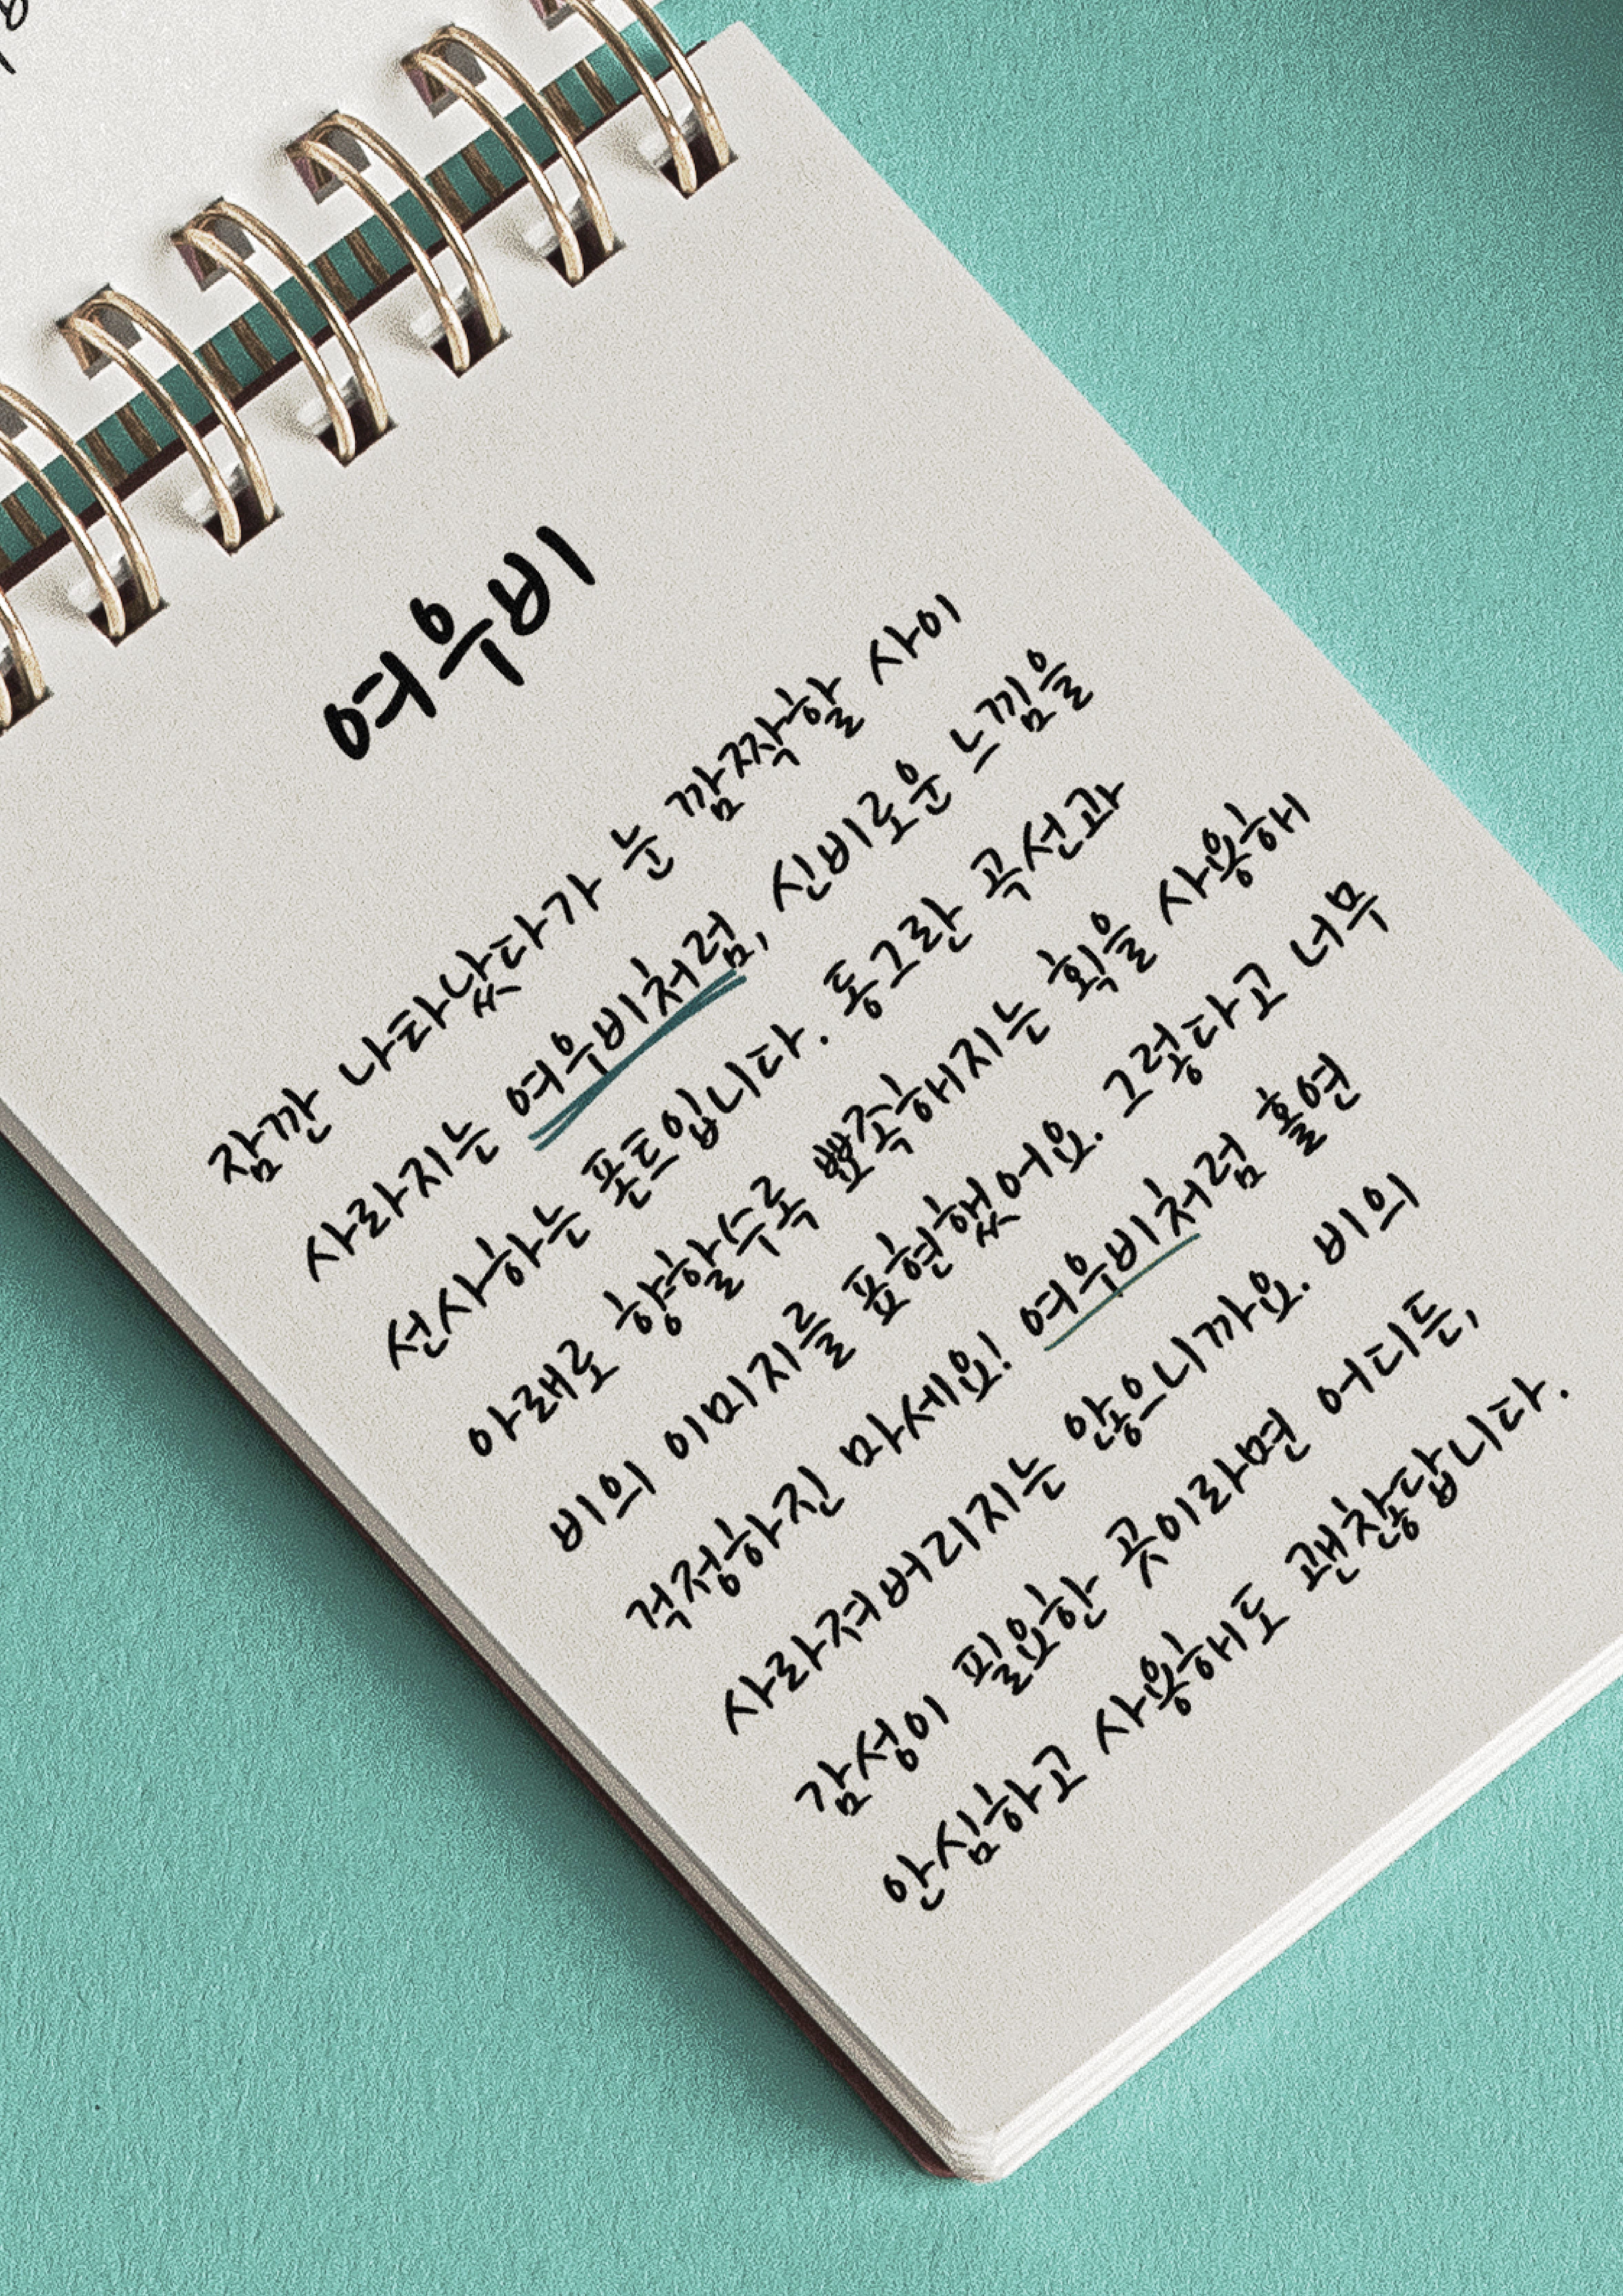 여우비
잠깐 나타났다가 눈 깜짝할 사이
사라지는 여우비처럼, 신비로운 느낌을
선사하는 폰트입니다. 동그란 곡선과
아래로 향할수록 뾰족해지는 획을 사용해
비의 이미지를 표현했어요. 그렇다고 너무
걱정하진 마세요! 여우비처럼 홀연
사라져버리지는 않으니까요. 비의
감성이 필요한 곳이라면 어디든,
안심하고 사용해도 괜찮답니다.